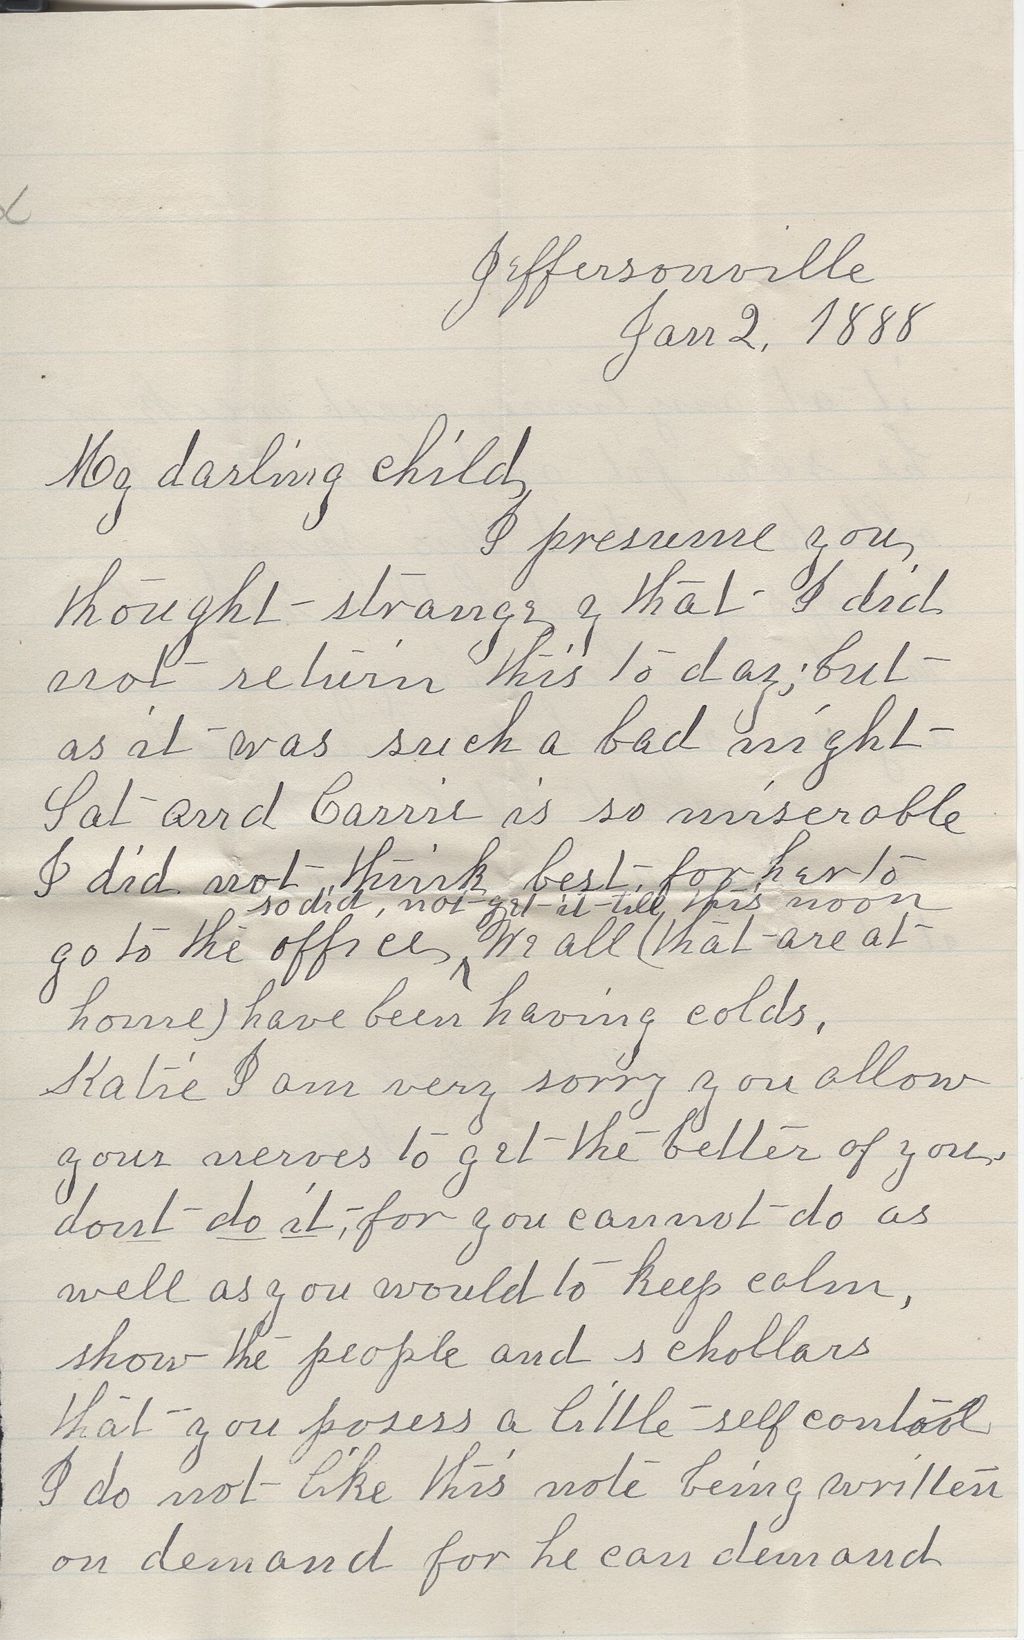 Jeffersonville
Jan 2, 1888
My darling child,
I presume you
thought strange y that I did
not return this to day; but
as it was such a bad night
Sat and Carrie is so miserable
I did not think best for her to
so did, not get it till this noon
go to the office, ^ We all (that are at
home) have been having colds,
Katie I am very sorry you allow
your nerves to get the better of you.
dont do it, for you cannot do as
well as you would to keep calm,
show the people and schollars
that you posess a little self control
I do not like this note being written
on demand for he can demand